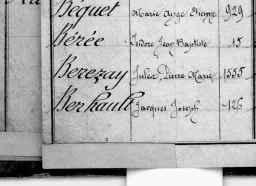 Béguet Marie Ange Etienne 929
Bérée Isidore Jean Baptiste 15
Berezay Jules Pierre Marie 1555
Berhault Jacques Joseph 126